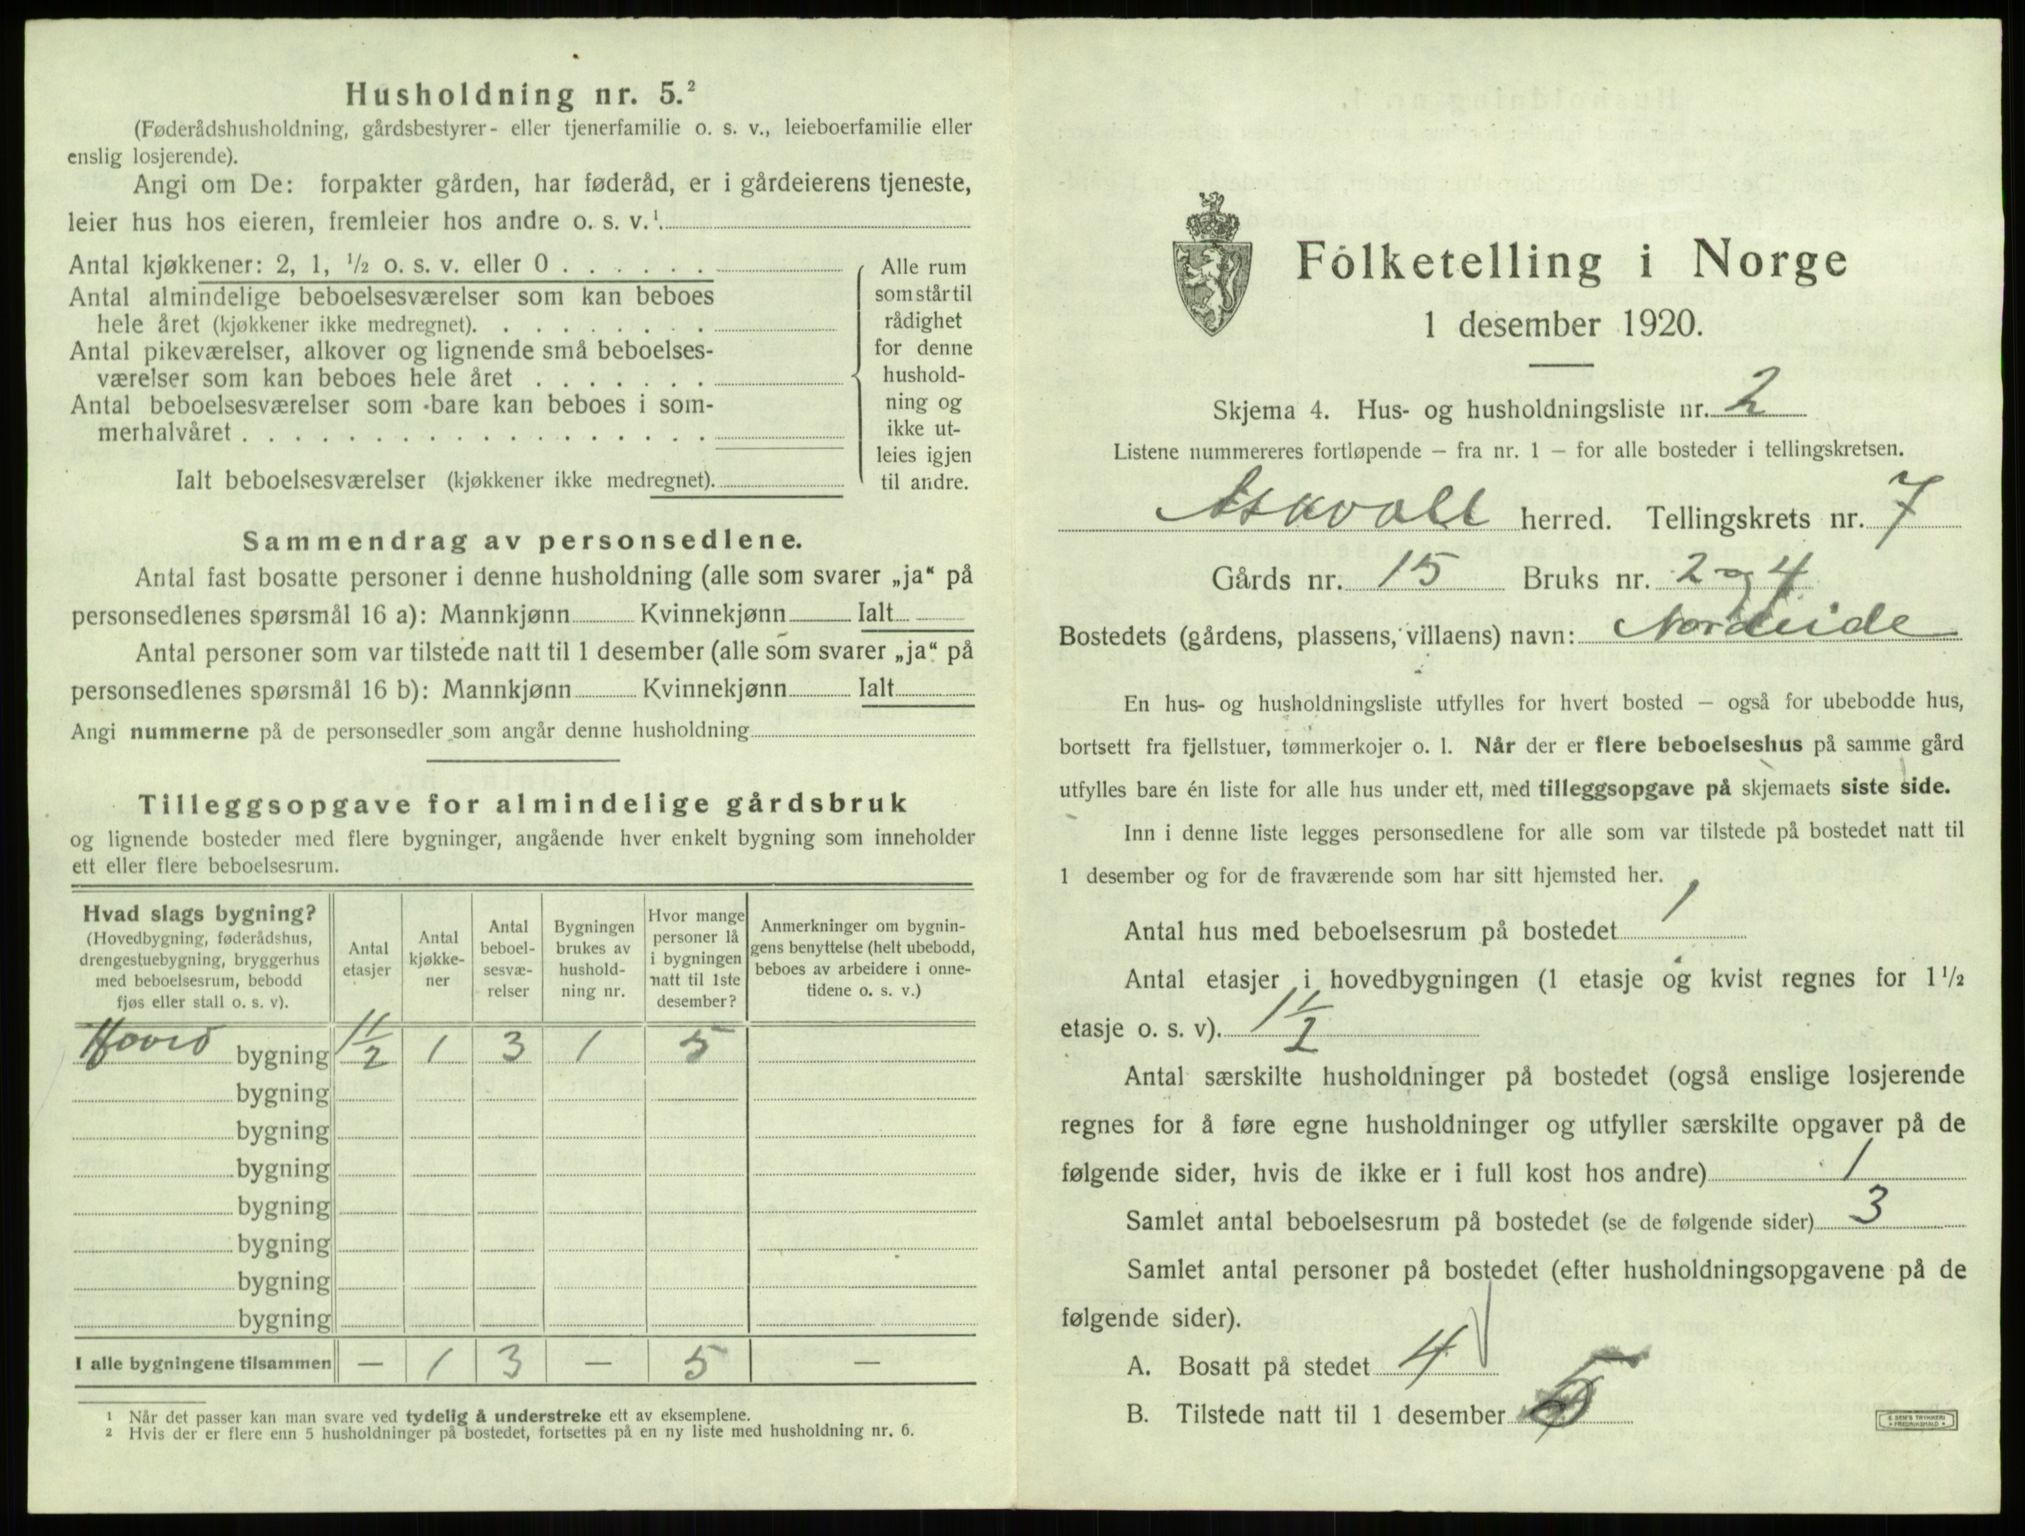 Husholdning nr. 5.²
(Føderådshusholdning, gårdsbestyrer- eller tjenerfamilie o. s. v., leieboerfamilie eller
enslig losjerende).
Angi om De: forpakter gården, har føderåd, er i gårdeierens tjeneste,
leier hus hos eieren, fremleier hos andre o. s. v.¹
Antal kjøkkener: 2, 1, ½ o. s. v. eller 0
Antal almindelige beboelsesværelser som kan beboes
hele året (kjøkkener ikke medregnet).
Antal pikeværelser, alkover og lignende små beboelses-
værelser som kan beboes hele året
Antal beboelsesværelser som bare kan beboes i som-
merhalvåret
Ialt beboelsesværelser (kjøkkener ikke medregnet).
Alle rum
som står til
rådighet
for denne
hushold-
ning og
ikke ut-
leies igjen
til andre.
Sammendrag av personsedlene.
Antal fast bosatte personer i denne husholdning (alle som svarer „ja“ på
personsedlenes spørsmål 16 a): Mannkjønn Kvinnekjønn Ialt
Antal personer som var tilstede natt til 1 desember (alle som svarer „ja“ på
personsedlenes spørsmål 16 b): Mannkjønn Kvinnekjønn Ialt
Angi nummerne på de personsedler som angår denne husholdning
Tilleggsopgave for almindelige gårdsbruk
og lignende bosteder med flere bygninger, angående hver enkelt bygning som inneholder
ett eller flere beboelsesrum.
Hvad slags bygning?
(Hovedbygning, føderådshus,
drengestuebygning, bryggerhus
med beboelsesrum, bebodd
fjøs eller stall o. s. v).
Antal
etasjer
Antal
kjøkke-
ner
Antal
beboel-
sesvæ-
relser
Bygningen
brukes av
hushold-
ning nr.
Hvor mange
personer lå
i bygningen
natt til 1ste
desember?
Anmerkninger om bygnin-
gens benyttelse (helt ubebodd,
beboes av arbeidere i onne-
tidene o. s. v.)
Hoved bygning 1½ 1 3 1 5
bygning
bygning
bygning
bygning
bygning
bygning
bygning
I alle bygningene tilsammen — 1 3 — 5 —
¹ Når det passer kan man svare ved tydelig å understreke ett av eksemplene.
² Hvis der er flere enn 5 husholdninger på bostedet, fortsettes på en ny liste med husholdning nr. 6.
Folketelling i Norge
1 desember 1920.
Skjema 4. Hus- og husholdningsliste nr. 2
Listene nummereres fortløpende – fra nr. 1 – for alle bosteder i tellingskretsen.
Askvoll herred. Tellingskrets nr. 7
Gårds nr. 15 Bruks nr. 2 og 4
Bostedets (gårdens, plassens, villaens) navn: Nordeide
En hus- og husholdningsliste utfylles for hvert bosted – også for ubebodde hus,
bortsett fra fjellstuer, tømmerkojer o. l. Når der er flere beboelseshus på samme gård
utfylles bare én liste for alle hus under ett, med tilleggsopgave på skjemaets siste side.
Inn i denne liste legges personsedlene for alle som var tilstede på bostedet natt til
1 desember og for de fraværende som har sitt hjemsted her.
Antal hus med beboelsesrum på bostedet 1
Antal etasjer i hovedbygningen (1 etasje og kvist regnes for 1½
etasje o. s. v). 1½
Antal særskilte husholdninger på bostedet (også enslige losjerende
regnes for å føre egne husholdninger og utfyller særskilte opgaver på de
følgende sider, hvis de ikke er i full kost hos andre) 1
Samlet antal beboelsesrum på bostedet (se de følgende sider) 3
Samlet antal personer på bostedet (efter husholdningsopgavene på de
følgende sider).
A. Bosatt på stedet 4
B. Tilstede natt til 1 desember 5